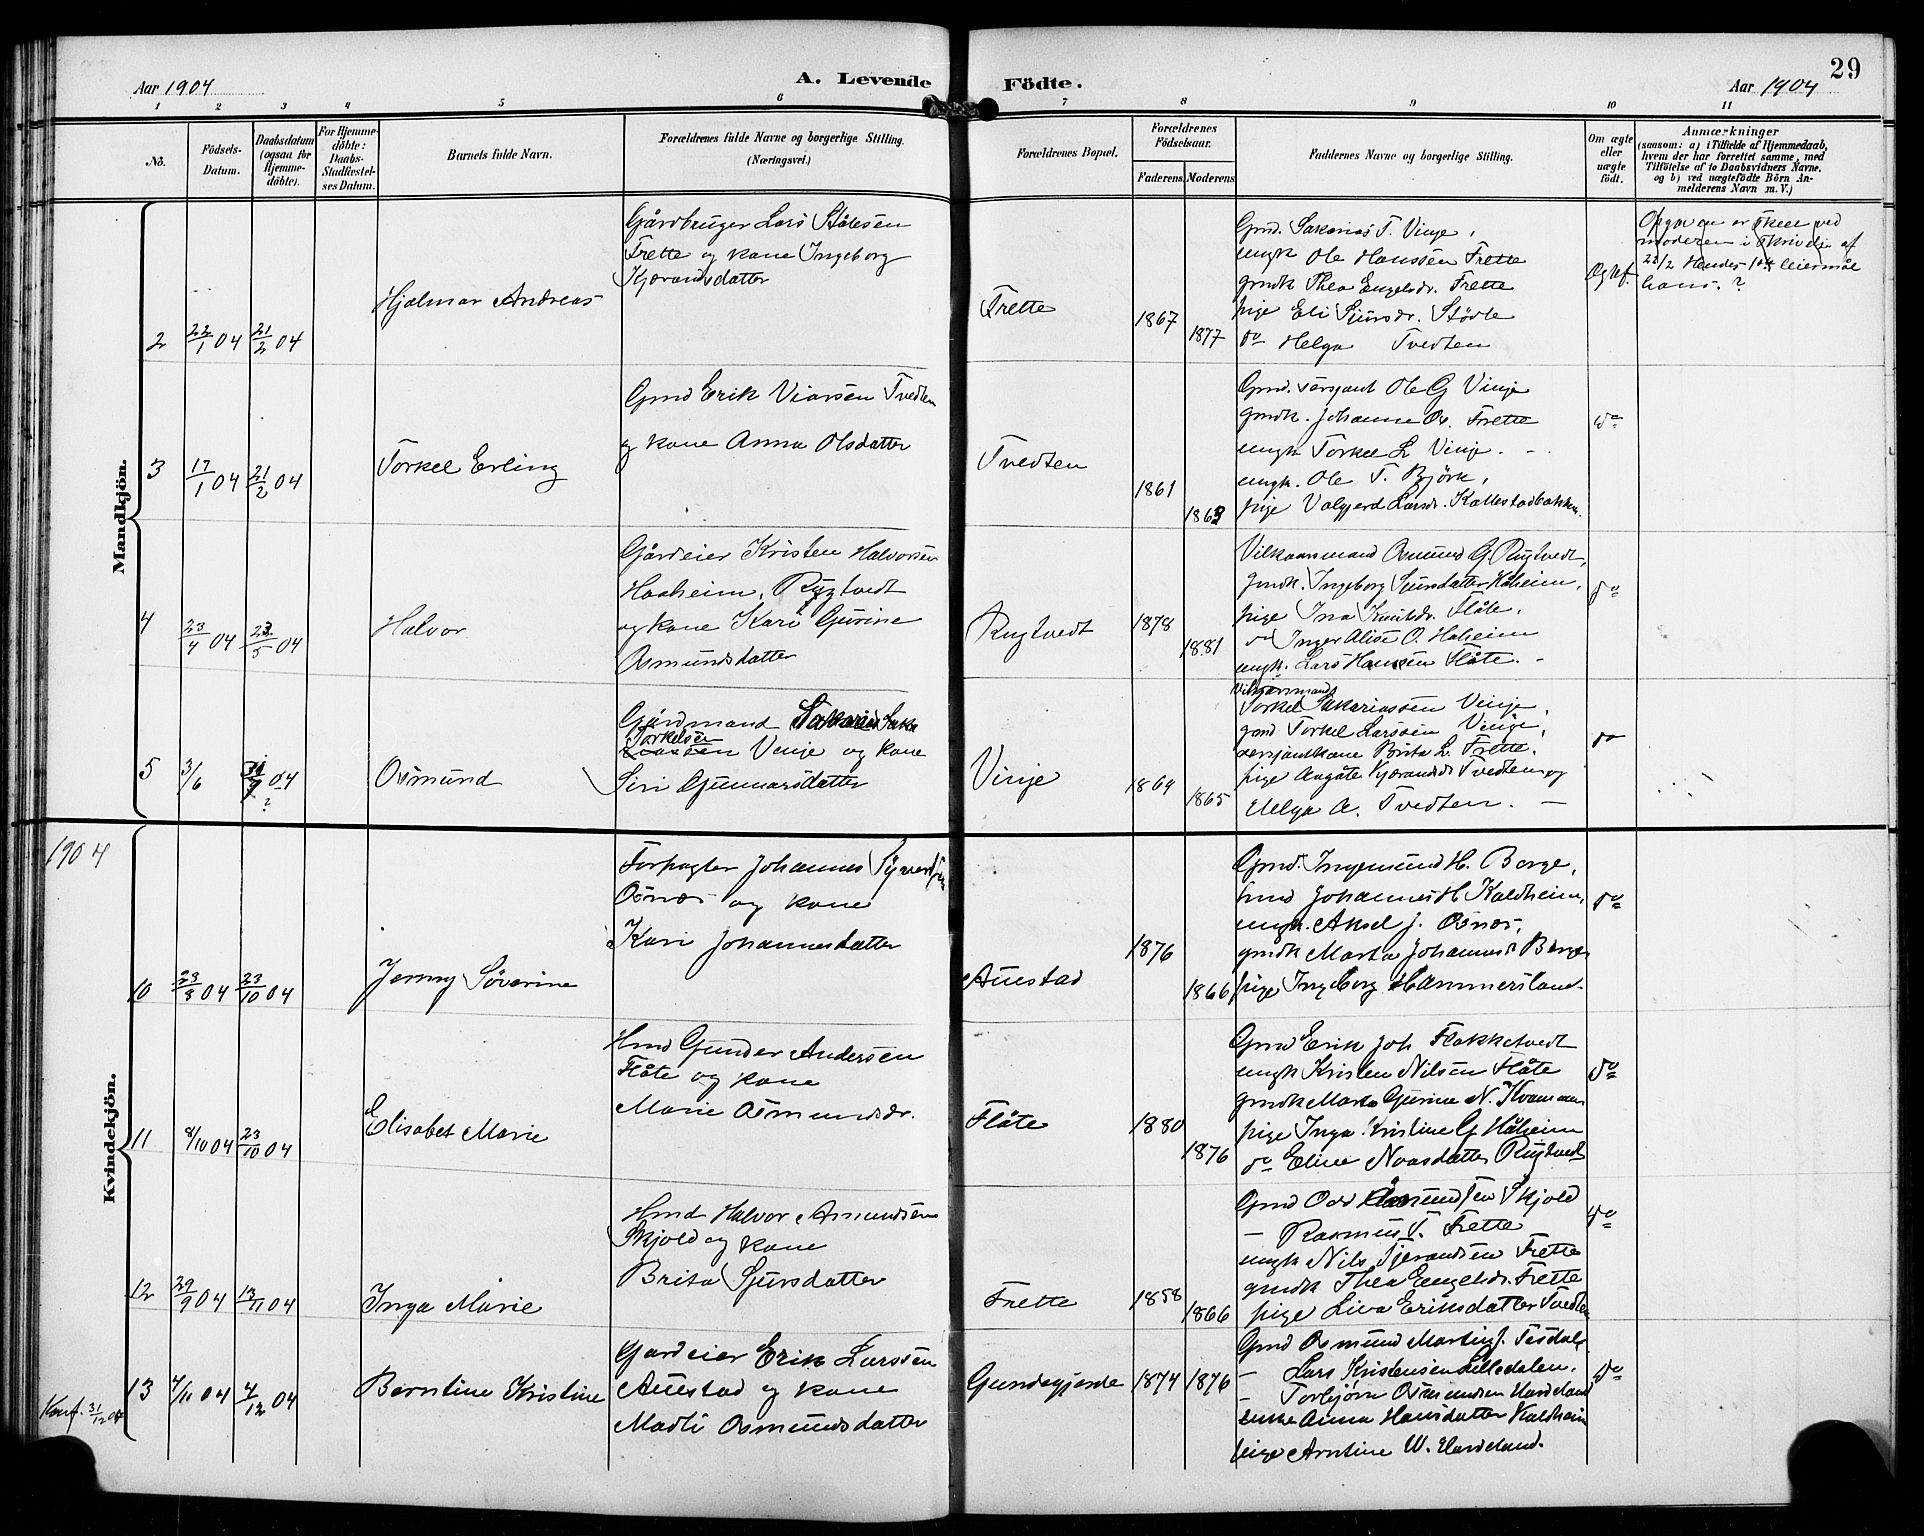 29
Aar 1904
A. Levende Födte.
Aar 1904
1 2 3 4 5 6 7 8 9 10 11
No.
Födsels-Datum.
Daabsdatum (ogsaa for Hjemme-döbte).
For Hjemme-döbte: Daabs-Stadfæstel-ses Datum.
Barnets fulde Navn.
Forældrenes fulde Navne og borgerlige Stilling.
(Næringsvei.)
Forældrenes Bopæl.
Forældrenes Födselsaar.
Faderens. Moderens.
Faddernes Navne og borgerlige Stilling.
Om ægte eller uægte födt.
Anmærkninger
(saasom: a) i Tilfælde af Hjemmedaab,
hvem der har forrettet samme, med
Tilföielse af to Daabsvidners Navne,
og b) ved uægtefödte Börn An-
melderens Navn m. V.)
Mandkjön.
2
22/1 04
21/2 04
Hjalmar Andreas
Gårdbruger Lars Ståtesen
Frette og kone Ingeborg
Kjærandsdatter
Frette
1867
1877
Gmd. Sakarias T. Vinje,
ungk Ole Hanssen Frette
gmdk Thea Engelsdr. Frette
pige Eli Sjursdr. Stødle
do Helga Tvedten
Ægtef.
er skeet ved
moderen i skrivelse af
22/2 Hendes leiermål
hans.?
3
17/1 04
21/2 04
Torkel Erling
Gmd Erik Viarsen Tvedten
og kone Anna Olsdatter
Tvedten
1861
1863
Gmd. sersjant Ole G Vinje
gmdk. Johanne Frette
ungk Torkel L Vinje. -
ungk. Ole T. Bjørk,
pige Valgjerd Larsdr. Kallestadbakken.
do
4
23/4 04
23/5 04
Halvor
Gårdeier Kristen Halvorsen
Haaheim, Rygtvedt
og kone Kari Gurine
Osmundsdatter
Rugtvedt
1878
1881
Vilkaarsmand Osmund G. Rugtvedt,
gmdk. Ingeborg Sjursdatter Håheim,
pige Ina Knutsdr. Flåte,
do Inger Alise O. Haheim
ungk. Lars Hansen Flåte. -
do
5
3/6
04 ?
Osmund
Gårdmand Sakarias
Torkelsen
Larsen Vinje og kone
Siri Gunnarsdatter
Vinje
1864
1865
Vilkaarsmand
Torkel Sakariassen Vinje,
gmd Torkel Larssen Vinje,
sersjantkone Brita L. Frette,
pige Aagåte Kjærandsdr Tvedten og
Helga A. Tvedten. -
do
1904
Kvindekjön.
10
23/8 04
23/10 04
Jenny Søverine
Forpagter Johannes
Osnes og kone
Kari Johannesdatter
Auestad
1876
1866
Gmd. Ingemund H. Borge,
hmd Johannes H Kaldheim,
ungk. Aksel J. Osnes,
gmdk Marta Johannesd. Borge
pige Ingeborg Hammersland.
do
11
8/10 04
23/10 04
Elisabet Marie
Hmd Gunder Andersen
Flåte og kone
Marie Osmundsdr.
Flåte
1880
1876
Gmd Erik Joh Flokketvedt
ungk Kristen Nilsen Flåte
gmdk Marta Gurine N. Kvamman
pige Inga Kristine G Håheim
do Eline Noasdatter Rugtvedt
do
12
29/9 04
13/11 04
Inga Marie
Hmd Halvor Amundsen
Skjold og kone
Brita Sjursdatter
Frette
1858
1866
Gmd Skjold
- Rasmus T. Frette
ungk Nils Tjerandsen Frette
gmdk Thea Engelsdr. Frette
pige Liva Eriksdatter Tvedten
do
13
4/11 04
4/12 04
Berntine Kristine
Gardeier Erik Larssen
Auestad og kone
Madli Osmundsdatter
Gundegjerde
1874
1876
Gmd Osmund Martin J. Tesdal
- Lars Kristensen Lilledalen.
- Torbjørn Osmundsen Hardeland
enke Anna Hansdatter Kaldheim
pige Arntine W. Hardeland.
do
Konf. 31/12 04